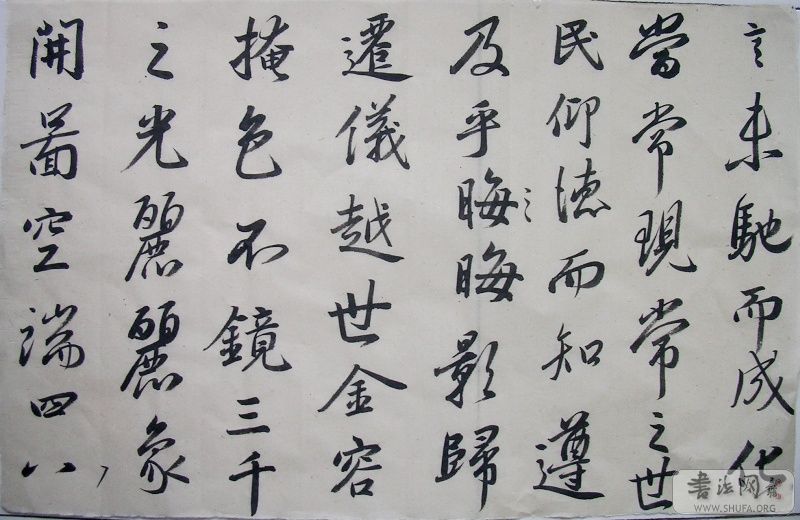 言未馳而成化
當常現常之世
民仰德而知遵
及乎晦晦影歸
遷儀越世金容
掩色不鏡三千
之光麗麗象
開圖空端四八
書法网
WWW.SHUFA.ORG